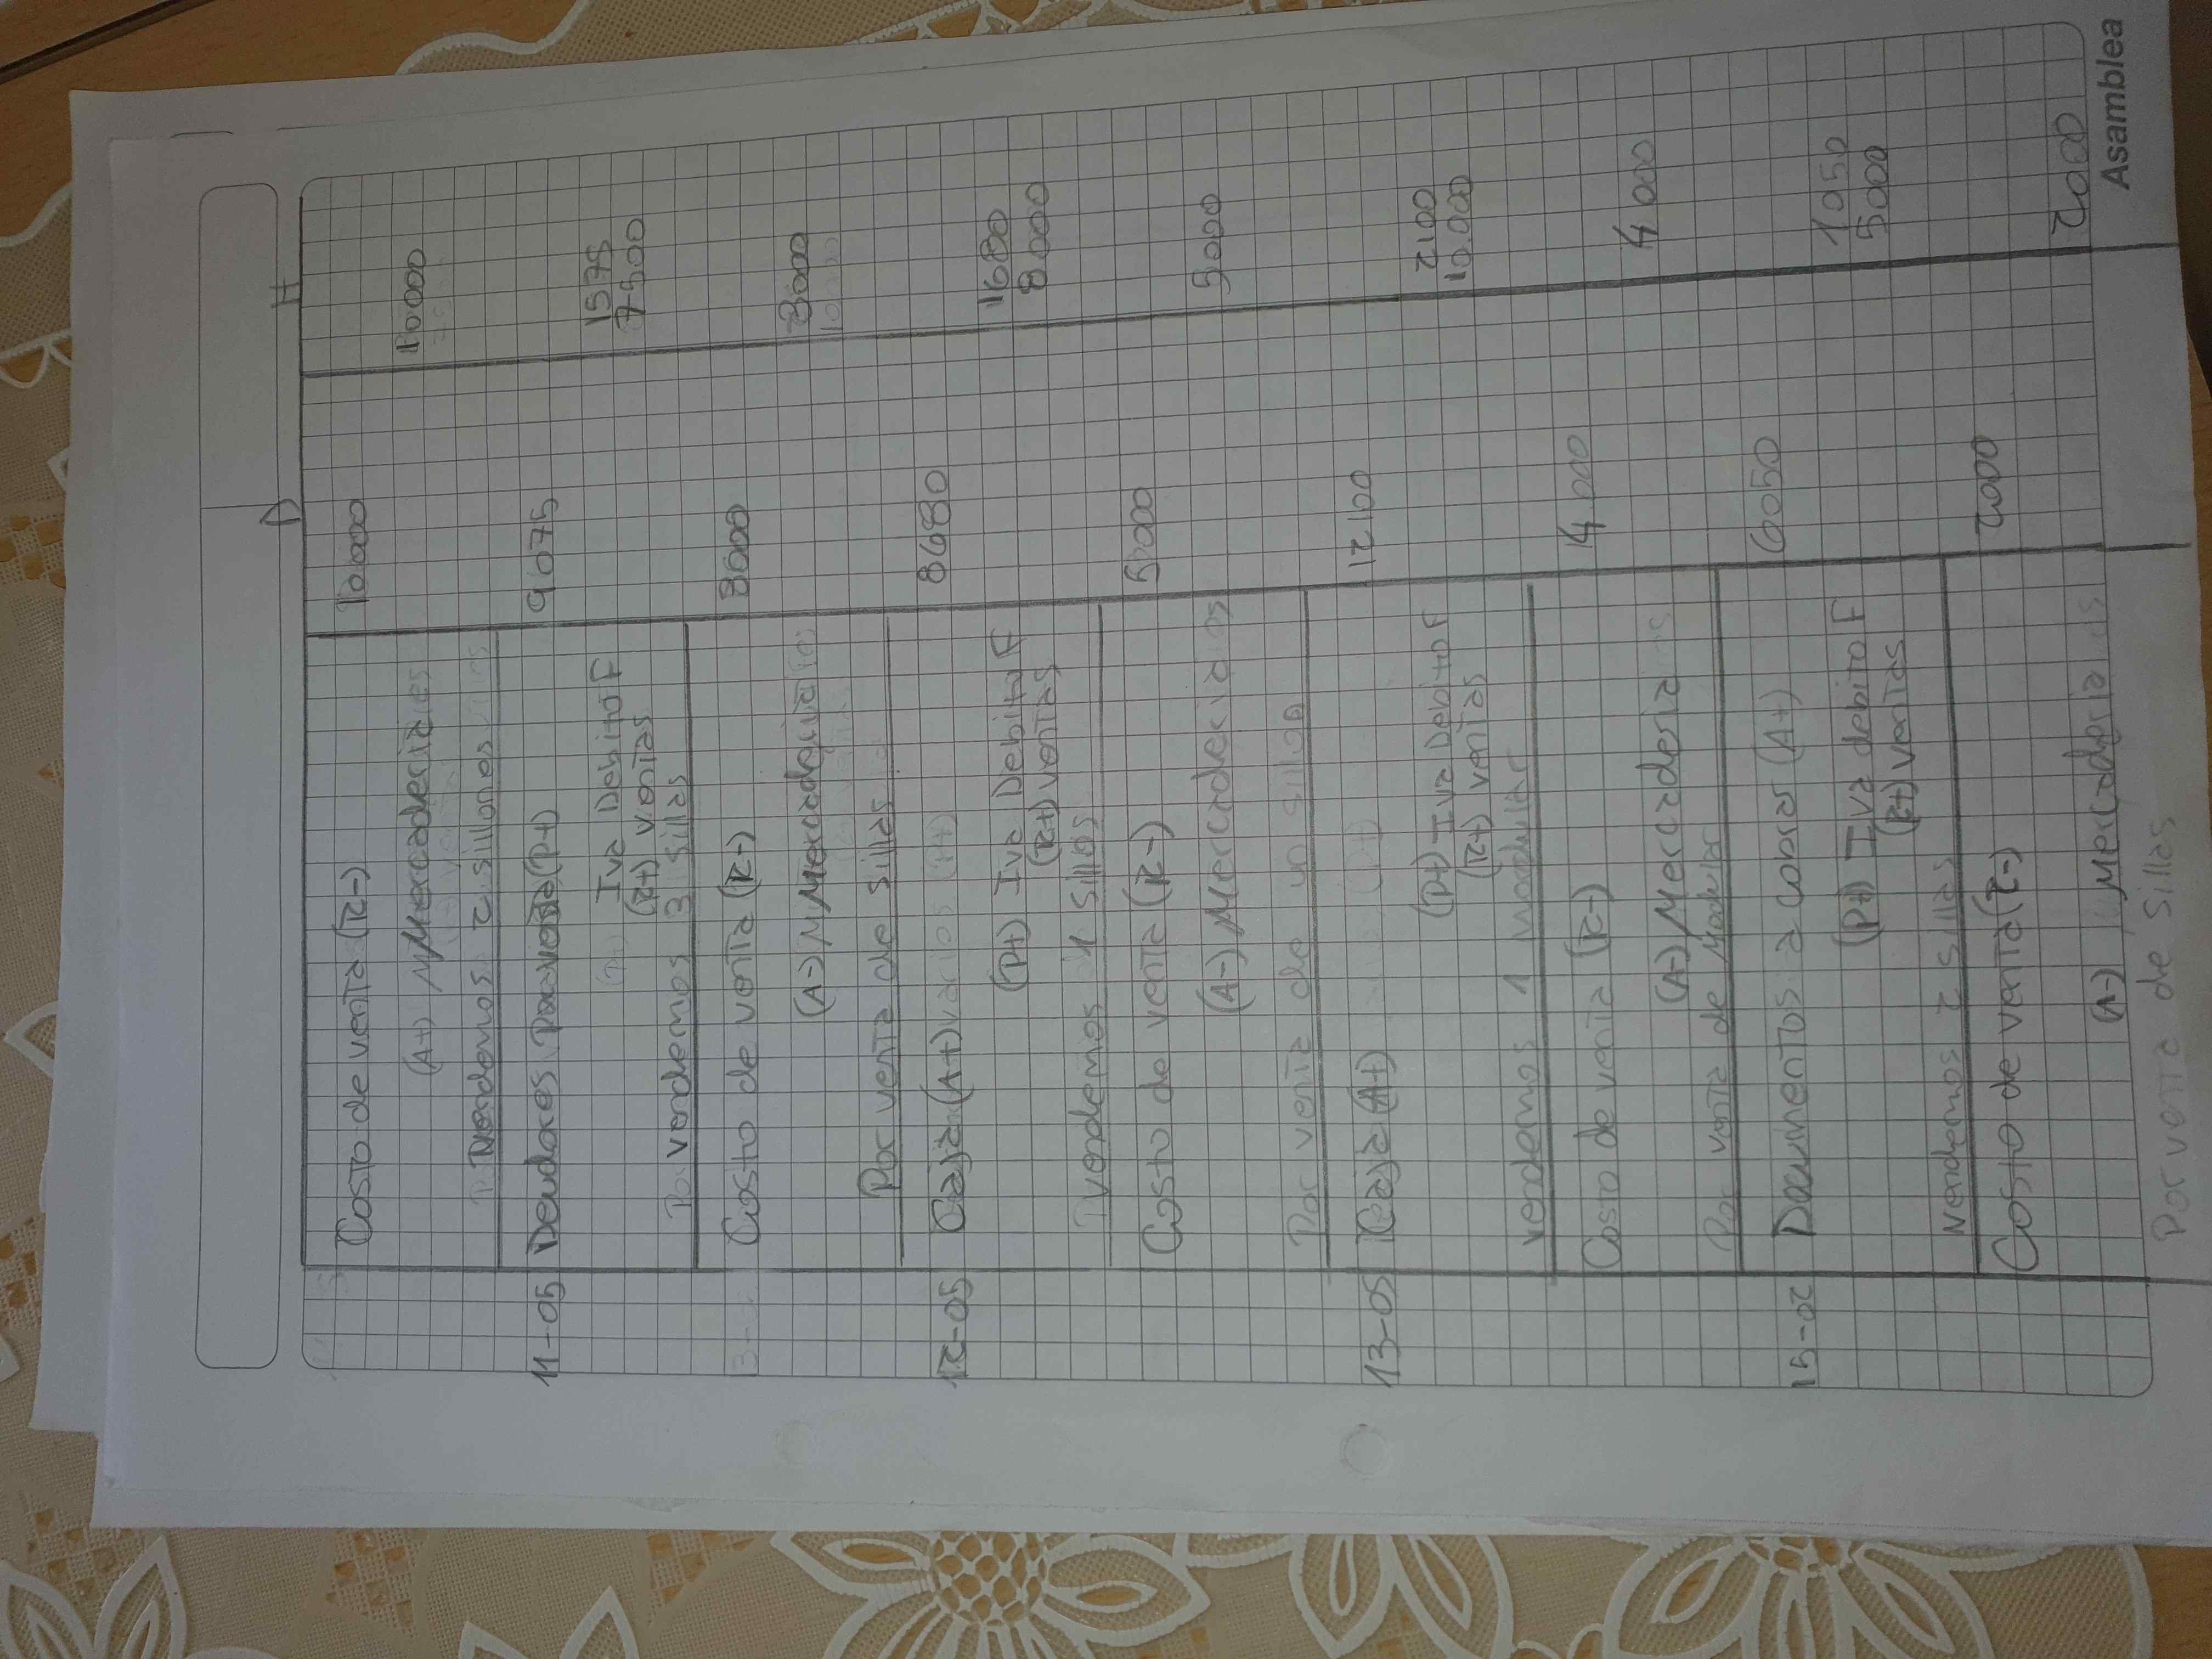 D H
Costo de venta (R-) 10000
(A+) Mercaderias 10000
Vendemos 2 sillones
11-05 Deudores Por venta (P+) 9075
Iva Debito F 1575
(R+) ventas 7500
Por vendemos 3 sillas
Costo de venta (R-) 3000
(A-) Mercaderia 3000
Por venta de sillas
12-05 Caja (A+) varios 8680
(P+) Iva Debito F 1680
(R+) ventas 8000
vendemos 1 sillos
Costo de venta (R-) 5000
(A-) Mercaderias 5000
Por venta de un sillon
13-05 Caja (A+) 12100
(P+) Iva Debito F 2100
(R+) ventas 10.000
vendemos 1 modular
Costo de venta (R-) 4000
(A-) Mercaderias 4000
Por venta de Modular
15-02 Documentos a cobrar (A+) 6050
(P+) Iva debito F 1050
(R+) ventas 5000
Vendemos 2 sillas
Costo de venta (R-) 2000
(A-) Mercaderias 2000
Por venta de sillas
Asamblea